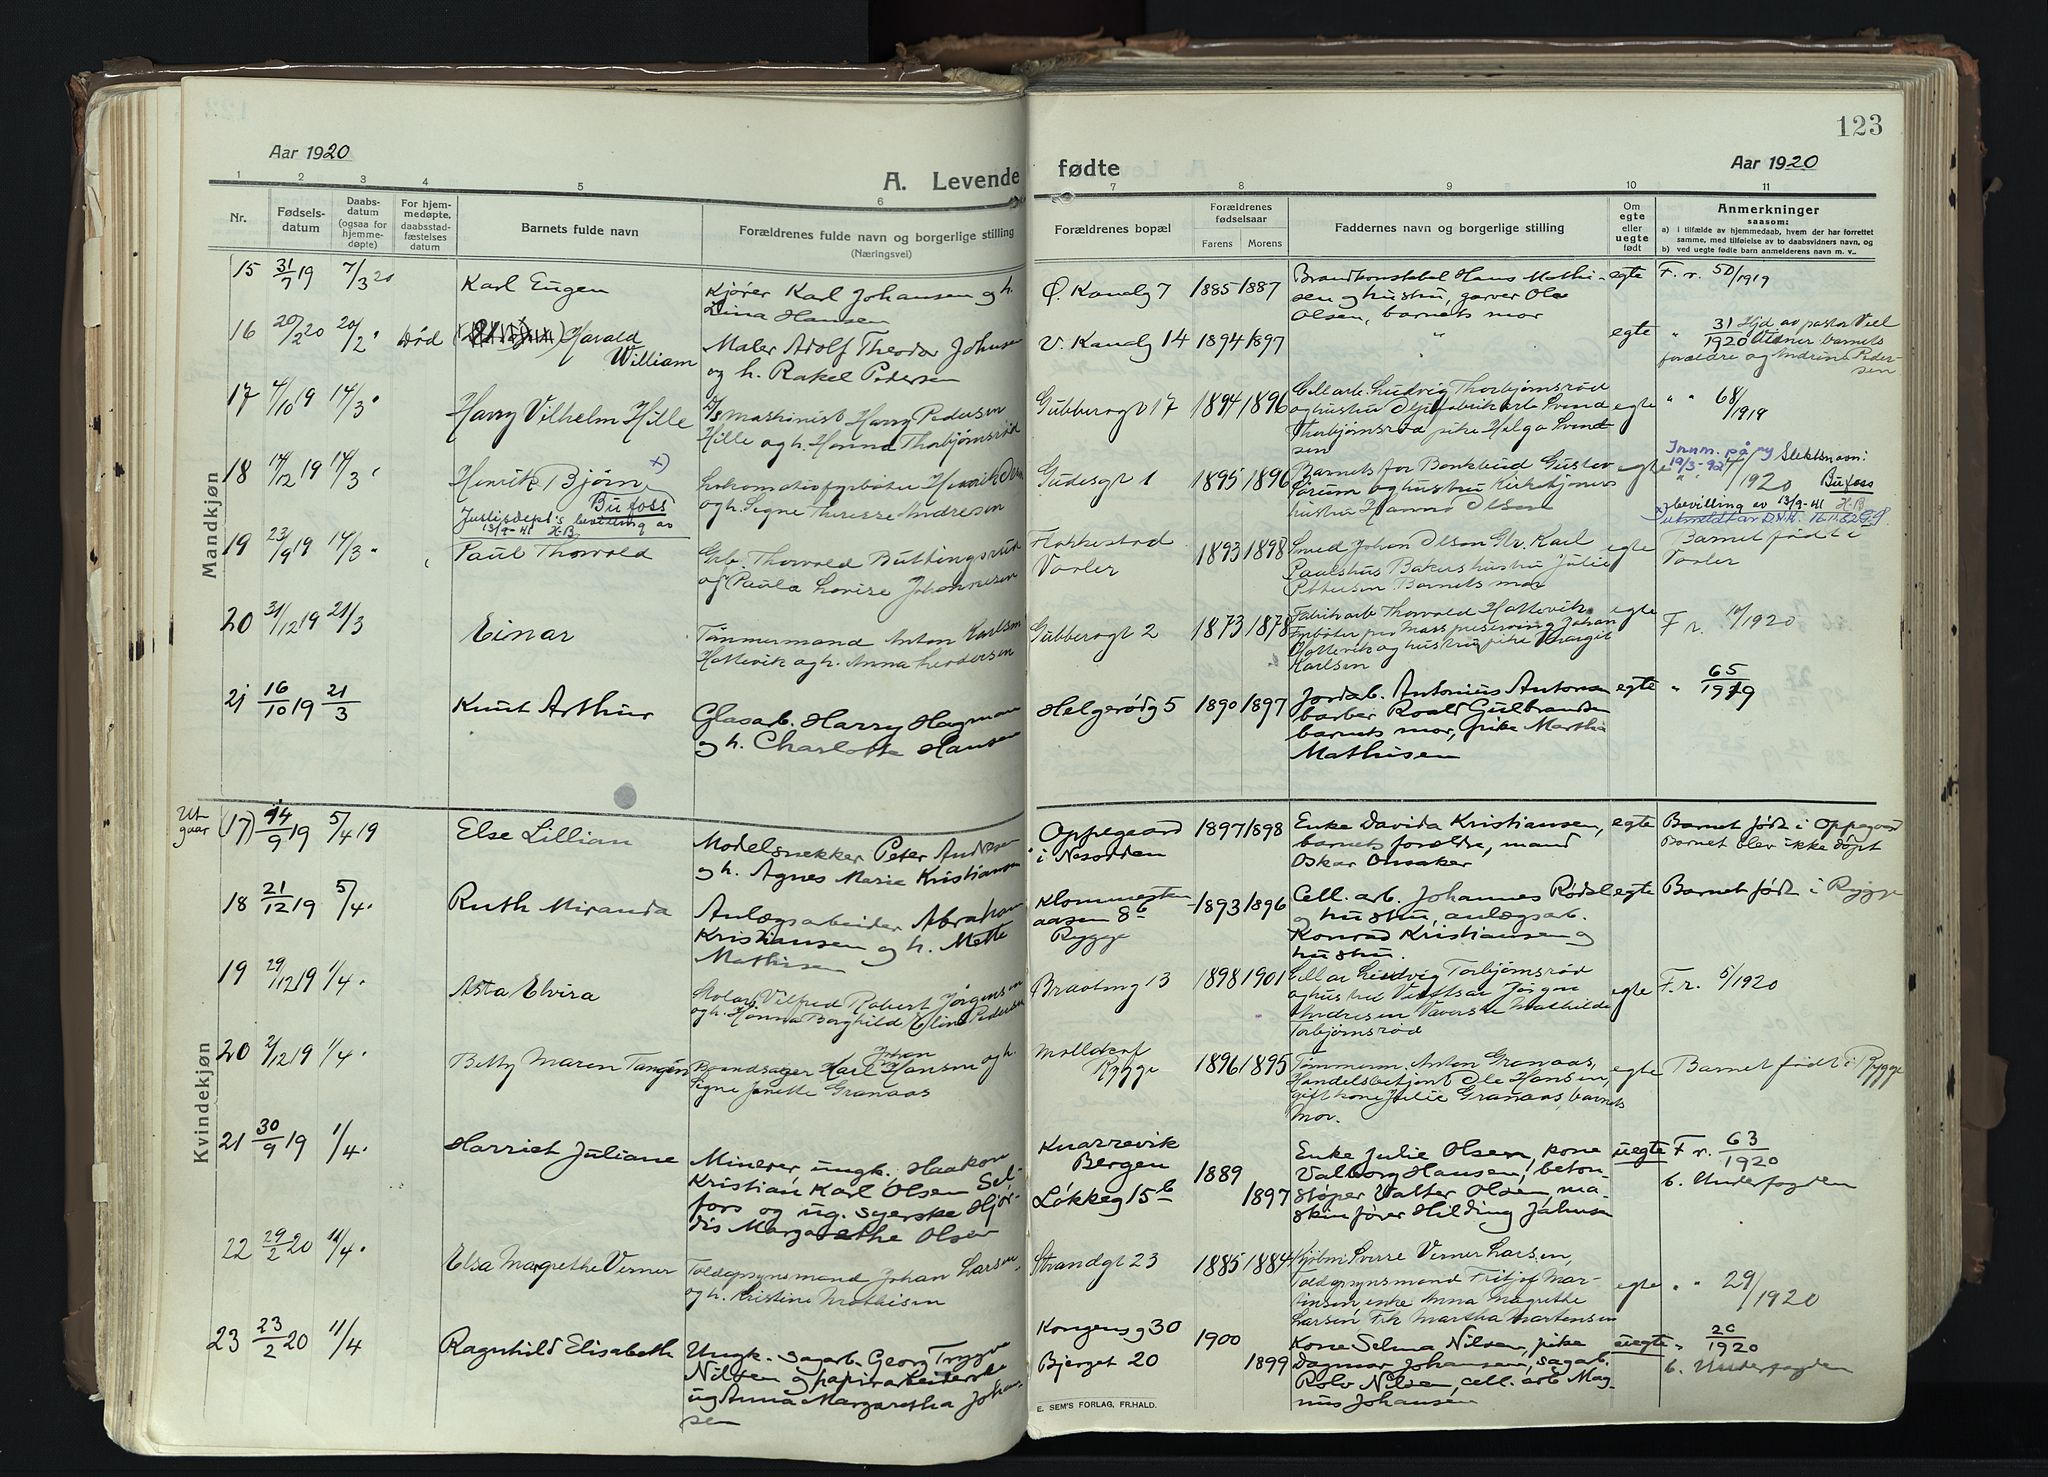 123
Aar 1920
Aar 1920
A. Levende fødte
1 2 3 4 5 6 7 8 9 10 11
Nr.
Fødsels-
datum
Daabs-
datum
(ogsaa for
hjemme-
døpte)
For hjem-
medøpte,
daabsstad-
fæstelses
datum
Barnets fulde navn
Forældrenes fulde navn og borgerlige stilling
(Næringsvei)
Forældrenes bopæl
Forældrenes
fødselsaar
Farens Morens
Faddernes navn og borgerlige stilling
Om
egte
eller
uegte
født
Anmerkninger
saasom:
a) i tilfælde av hjemmedaab, hvem der har forrettet
samme, med tilføielse av to daabsvidners navn, og
b) ved uegte fødte barn anmelderens navn m. v..
Mandkjøn
15 31/7 19 7/3 20 Karl Eugen
Kjører Karl Johansen og h.
Lina Hansen
Ø. Kanalg 7 1885 1887
Brandkonstabel Hans Mathi-
sen og hustru, garver Ole
Olsen, barnets mor
egte F. r. 50/1919
16 20/2 20 20/2 " død Harald
William
Maler Adolf Theodor Johnsen
og h. Rakel Pedersen
V. Kanalg 14 1894 1897 "
egte " 31/1920 Hjd av pastor Veel
Vidner barnets
forældre og Andrine Peder-
sen
17 4/10 19 14/3 " Harry Vilhelm Hille
D/s maskinist Harry Pedersen
Hille og h. Hanna Thorbjørnsrød
Gubberogt 17 1894 1896
Cell arb. Ludvig Thorbjørnsrød
og hustru fabrikarb Svend
Thorbjørnsrød pike Helga Svend-
sen
egte " " 68/1919
18 14/12 19 14/3 " Henrik Bjørn x)
Bufoss
Justisdept's bevilling av
13/9-41 H.B
Lokomotivfyrbøter Henrik
og h. Signe Therese Andresen
Gudesgt 1 1895 1896
Barnets far Bankbud Gustav
Sørum og hustru Kirketjener
hustru Hanna Olsen
egte
Innm. på ny Slektsnavn:
19/3-92 /1920 Bufoss
bevilling av 13/9-41 H.B
x) utmeldt av D.N.K. 16.11.52 G.J.
19 23/9 19 14/3 " Paul Thorvald
Grb. Thorvald Buttingsrud
og Paula Lovise Johannesen
Flakkestad
Vaaler
1893 1898
Smed Johan Olsen Gbr. Karl
Paulshus Bakers hustru Julie
Pettersen Barnets mor
egte Barnet født i
Vaaler
20 31/12 19 21/3 Einar
Tømmermand Anton Karlsen
Hattevik og h. Anna Leodersen
Gubberogt 2 1873 1878
Fabrikarb Thorvald Hattevik
Fyrbøter paa Moss preserving Johan
Hattevik og hustru pike Margit
Karlsen
egte F r. 10/1920
21 16/10 19 21/3 Knut Arthur
Glasarb. Harry Hagman
og h. Charlotte Hansen
Helgerødg 5 1890 1897
Jordab. Antonius Antonsen
barber Roald Gulbrandsen
barnets mor, pike Martha
Mathisen
egte " 65/1919
Kvindekjøn
Ut-
gaar
(17) 14/9 19 5/4 19 Else Lillian
Modelsnekker Peter Andresen
og h. Agnes Marie Kristiansen
Oppegaard
i Nesodden
1897 1898
Enke Davida Kristiansen,
barnets forældre, mand
Oskar Onsaker
egte Barnet født i Oppegaard
Barnet blev ikke døpt
18 21/12 19 5/4. Ruth Miranda
Anlægsarbeider Abraham
Kristiansen og h. Mette
Mathisen
Klommesten
aasen 8b
Rygge
1893 1896
Cell. arb. Johannes Rødsle
og hustru, anlægsarb.
Konrad Kristiansen og
hustru.
egte Barnet født i Rygge
19 29/12 19 1/4. Asta Elvira
Skolar Vilfred Robert Jørgensen
og h. Hanna Borghild Eline Pedersen
Braatengt 13 1898 1901
Cell ar Ludvig Torbjørnsrød
og hustru Jørgen
Andresen Væverske Mathilde
Torbjørnsrød
egte F. r. 5/1920
20 2/12 19 1/4. Betty Maren Tangen
Baandsager Karl Johan Hansen og h.
Signe Janette Granaas
Molldorf
Rygge
1896 1895
Tømmerm. Anton Granaas,
Handelsbetjent Ole Hansen,
gift kone Julie Granaas, barnets
Mor.
egte Barnet født i Rygge
21 30/9 19 1/4. Harriet Juliane
Minerer ungk. Haakon
Kristian Karl Olsen Sel-
fors og ug. syerske Hjør-
dis Margarethe Olsen
Knarrevik
Bergen
Løkkeg 15b
1889
1897
Enke Julie Olsen, kone
Valborg Hansen, beton-
støper Valter Olsen, ma-
skinfører Hilding Johnsen
uegte F r. 63/1920
b. Underfogden
22 29/2 20 11/4. Elsa Magrethe Verner
Toldopsynsmand Johan Larsen,
og h. Kristine Mathisen
Strandgt 23 1885 1884
Kjøbm Sverre Verner Larsen,
Toldopsynsmand Fritjof Mar-
tinsen, enke Anna Magrethe
Larsen Frk Martha Martensen
egte " 29/1920
23 23/2 20 11/4 Ragnhild Elisabeth
Ungk. sagarb. Georg Trygve
Nilsen og papirarbeiderske
ug Anna Margaretha Johan-
sen
Kongensg 30
Bjerget 20
1900
1899
Kone Selma Nilsen, pike
Dagmar Johansen, sagarb.
Rolv Nilsen, cell. arb Mag-
nus Johansen
uegte " 26/1920
b. Underfogden
E. SEM'S FORLAG, FR.HALD.